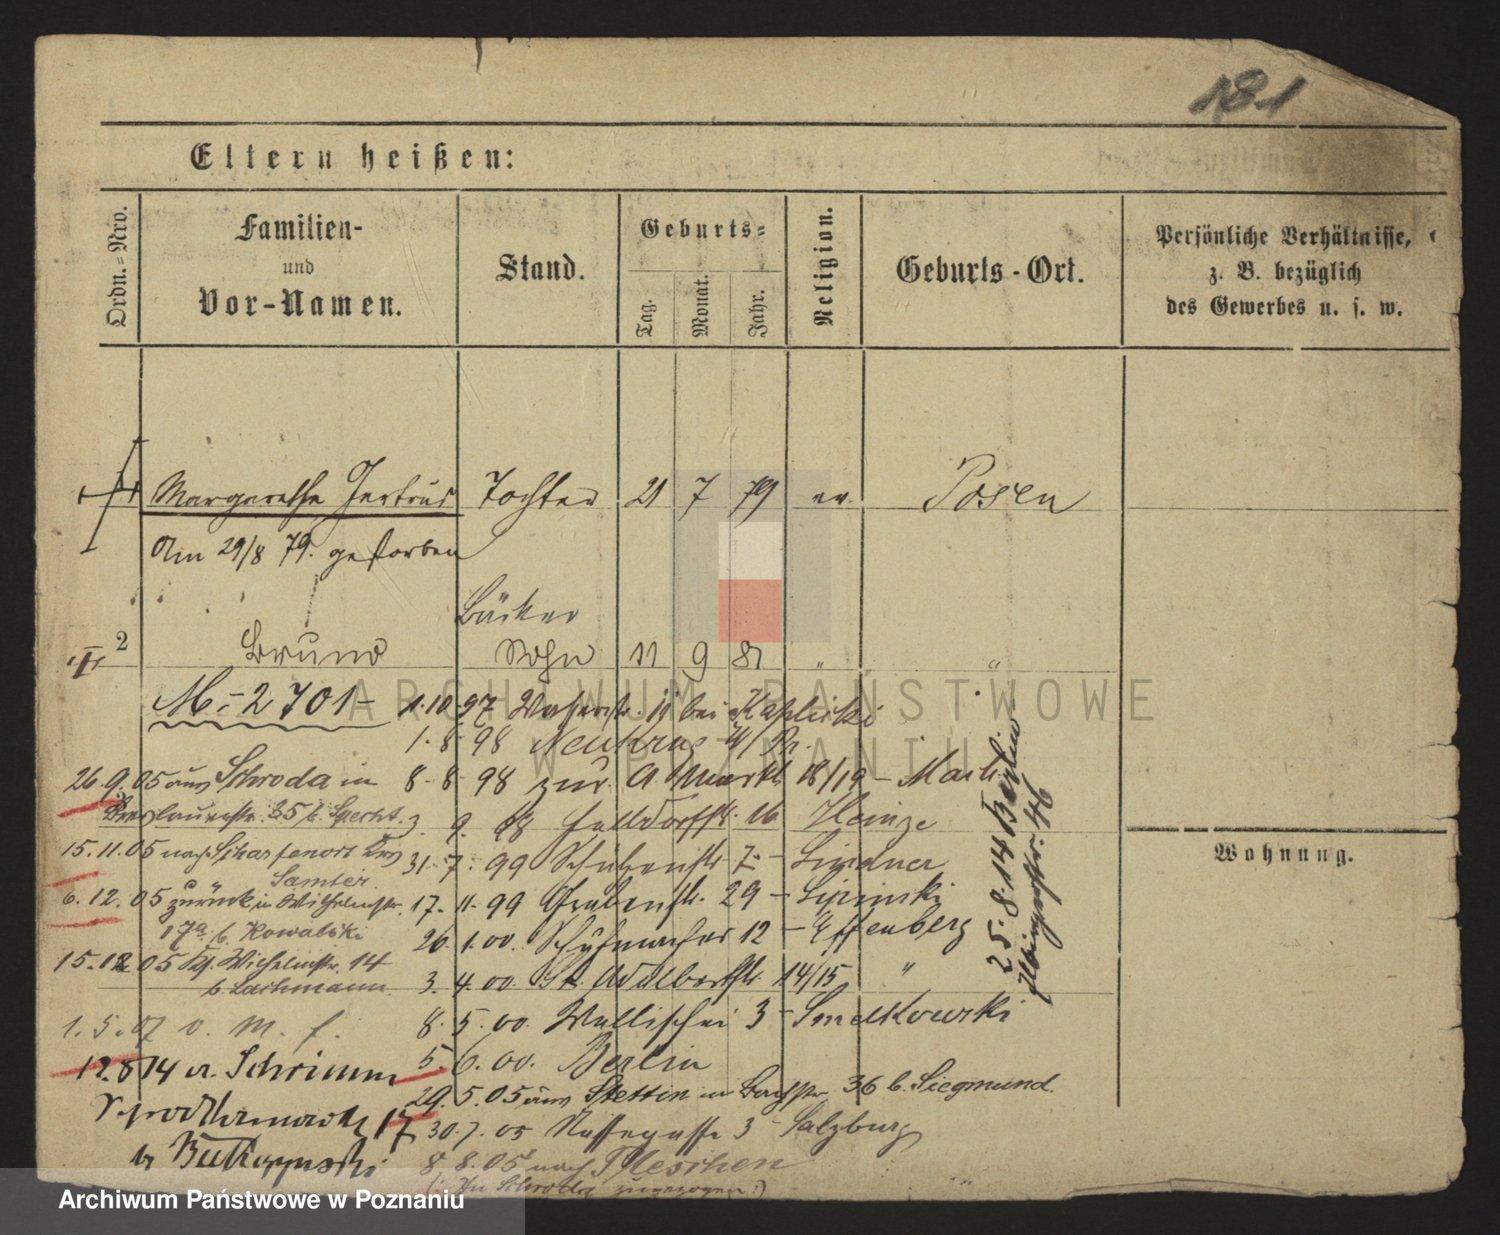 181
Eltern heißen:
Ordn.=Nro.
Familien-
und
Vor-Namen.
Stand.
Geburts=
Tag.
Monat.
Jahr.
Religion.
Geburts-Ort.
Persönliche Verhältnisse,
z. B. bezüglich
des Gewerbes u. s. w.
Margarethe Gertrud Tochter 21 7 79 ev. Posen
Am 29/8 79. gestorben
Bäcker
2 Bruno Sohn 11 9 81 " "
M.-2701-
1.10.97 bei Kaplicki
1.8.98 Neukrug
8.8.98 zur. A Markt 18/19 -
3.9.98 16 Heinze
31.7.99 Schützenstr. 7 - Lindner
17.11.99 Grabenstr. 29 - Lipinski
26.1.00. Schuhmacher 12 - Effenberg
3.4.00. St. Adalbertstr. 14/15 "
8.5.00. Wallischei 3 - Smelkowski
5.6.00. Berlin
29.5.05 aus Stettin in 36 b. Siegmund.
30.7.05 3 - Salzburg
8.8.05 nach Pleschen
(: In Schroda zugezogen :)
26.9.05 aus Schroda in
Breslauerstr. 35 b. Specht.
15.11.05 nach Scharfenort Krs
Samter.
6.12.05 zurück, in Wilhelmstr.
17a b. Kowalski
15.12.05 Wilhelmstr. 14
b. Lachmann.
1.5.07 v. M. f.
12.8.14 a. Schrimm
17
b
25.8.14 Berlin
46
Wohnung.
ARCHIWUM PAŃSTWOWE
W POZNANIU
Archiwum Państwowe w Poznaniu